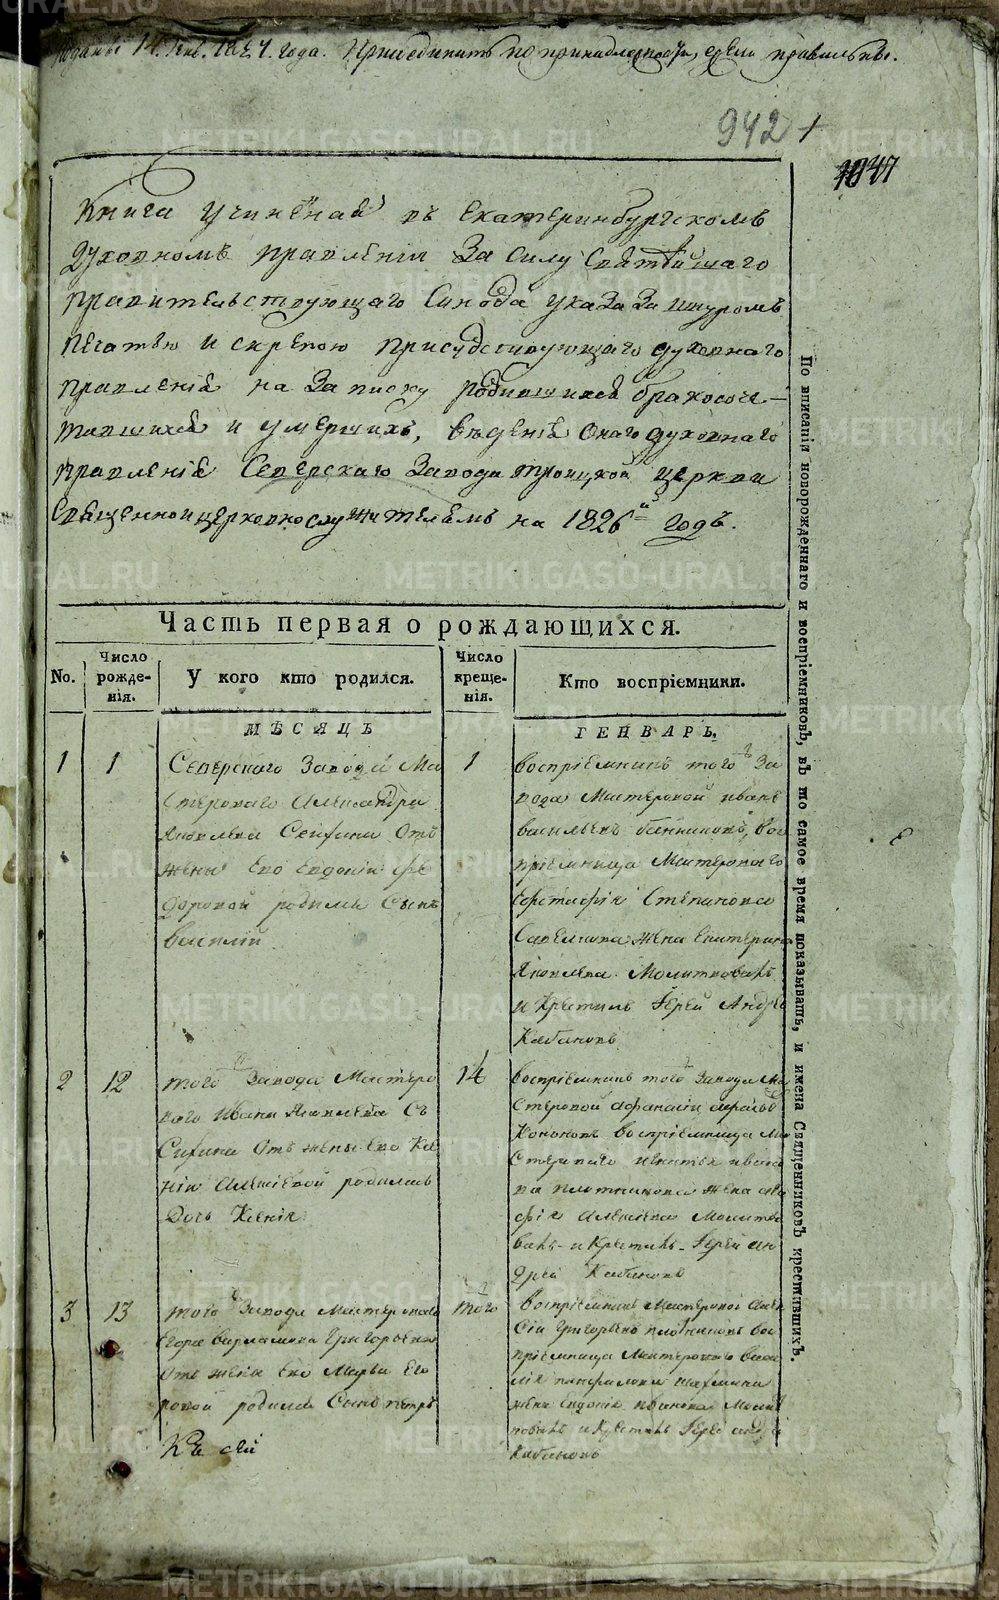 Поданы 14. Генв. 1827. года. Присоединить по принадлежности, правильны.
942
1047
Книга учиненая въ Екатеринбургскомъ
духовномъ правленіи За силу Святѣйшаго
правительствующаго Синода указа За шнуромъ
печатью и скрепою присудствующаго духовнаго
правленія на Записку родившихся бракосоче-
тавшихся и умершихъ, вѣденія Онаго духовнаго
правленія Северскаго Завода троицкой церкви
Священноицерковнослужителемъ на 1826й годъ.
Часть первая о рождающихся.
No.
Число рожде-нія.
У кого кто родился.
Число креще-нія.
Кто воспріемники.
МѢСЯЦЪ ГЕНВАРЬ.
1 1
Северскаго Завода Ма
стероваго Александра
Яковлева от
жены Его Евдокіи Фе
доровой родился Сынъ
Василій
1
воспріемникъ того За
вода Мастеровой иванъ
васильевъ банниковъ, вос
пріемница Мастероваго
Степанова
Савелкова жена Екатерина
Яковлева. Молитвовалъ
и Крестилъ Іерей Андрей
Кабановъ
2 12
того Завода Мастеро
ваго Ивана Яковлева
отъ жены Его Ксе
ніи Алексіевой родилась
Дочь Ксенія
14
воспріемникъ того Завода Ма
стеровой афанасіи
Кононовъ воспріемница Ма
стероваго игнатья ивано
ва плотникова жена
Алексіева Молитво
валъ и Крестилъ Іерей ан
дрей Кабановъ
3 13
того Завода Мастероваго
Егора Григорьева
отъ жены Его Марьи Его
ровой родился Сынъ петръ
того
воспріемникъ Мастеровой
Григорьевъ плотниковъ вос
пріемница Мастероваго Васи
лія панфилова
жена Евдокія иванова Молит
вовалъ и Крестилъ Іерей андрей
Кабановъ
Къ сей
По вписаніи новорожденнаго и воспріемниковъ, въ то самое время показывать, и имена Священниковъ крестившихъ.
METRIKI.GASO-URAL.RU